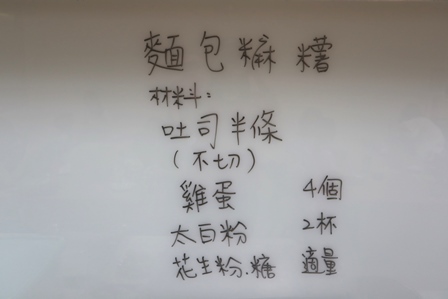 麵包糜糬
材料：
吐司半條
(不切)
雞蛋 4個
太白粉 2杯
花生粉.糖 適量